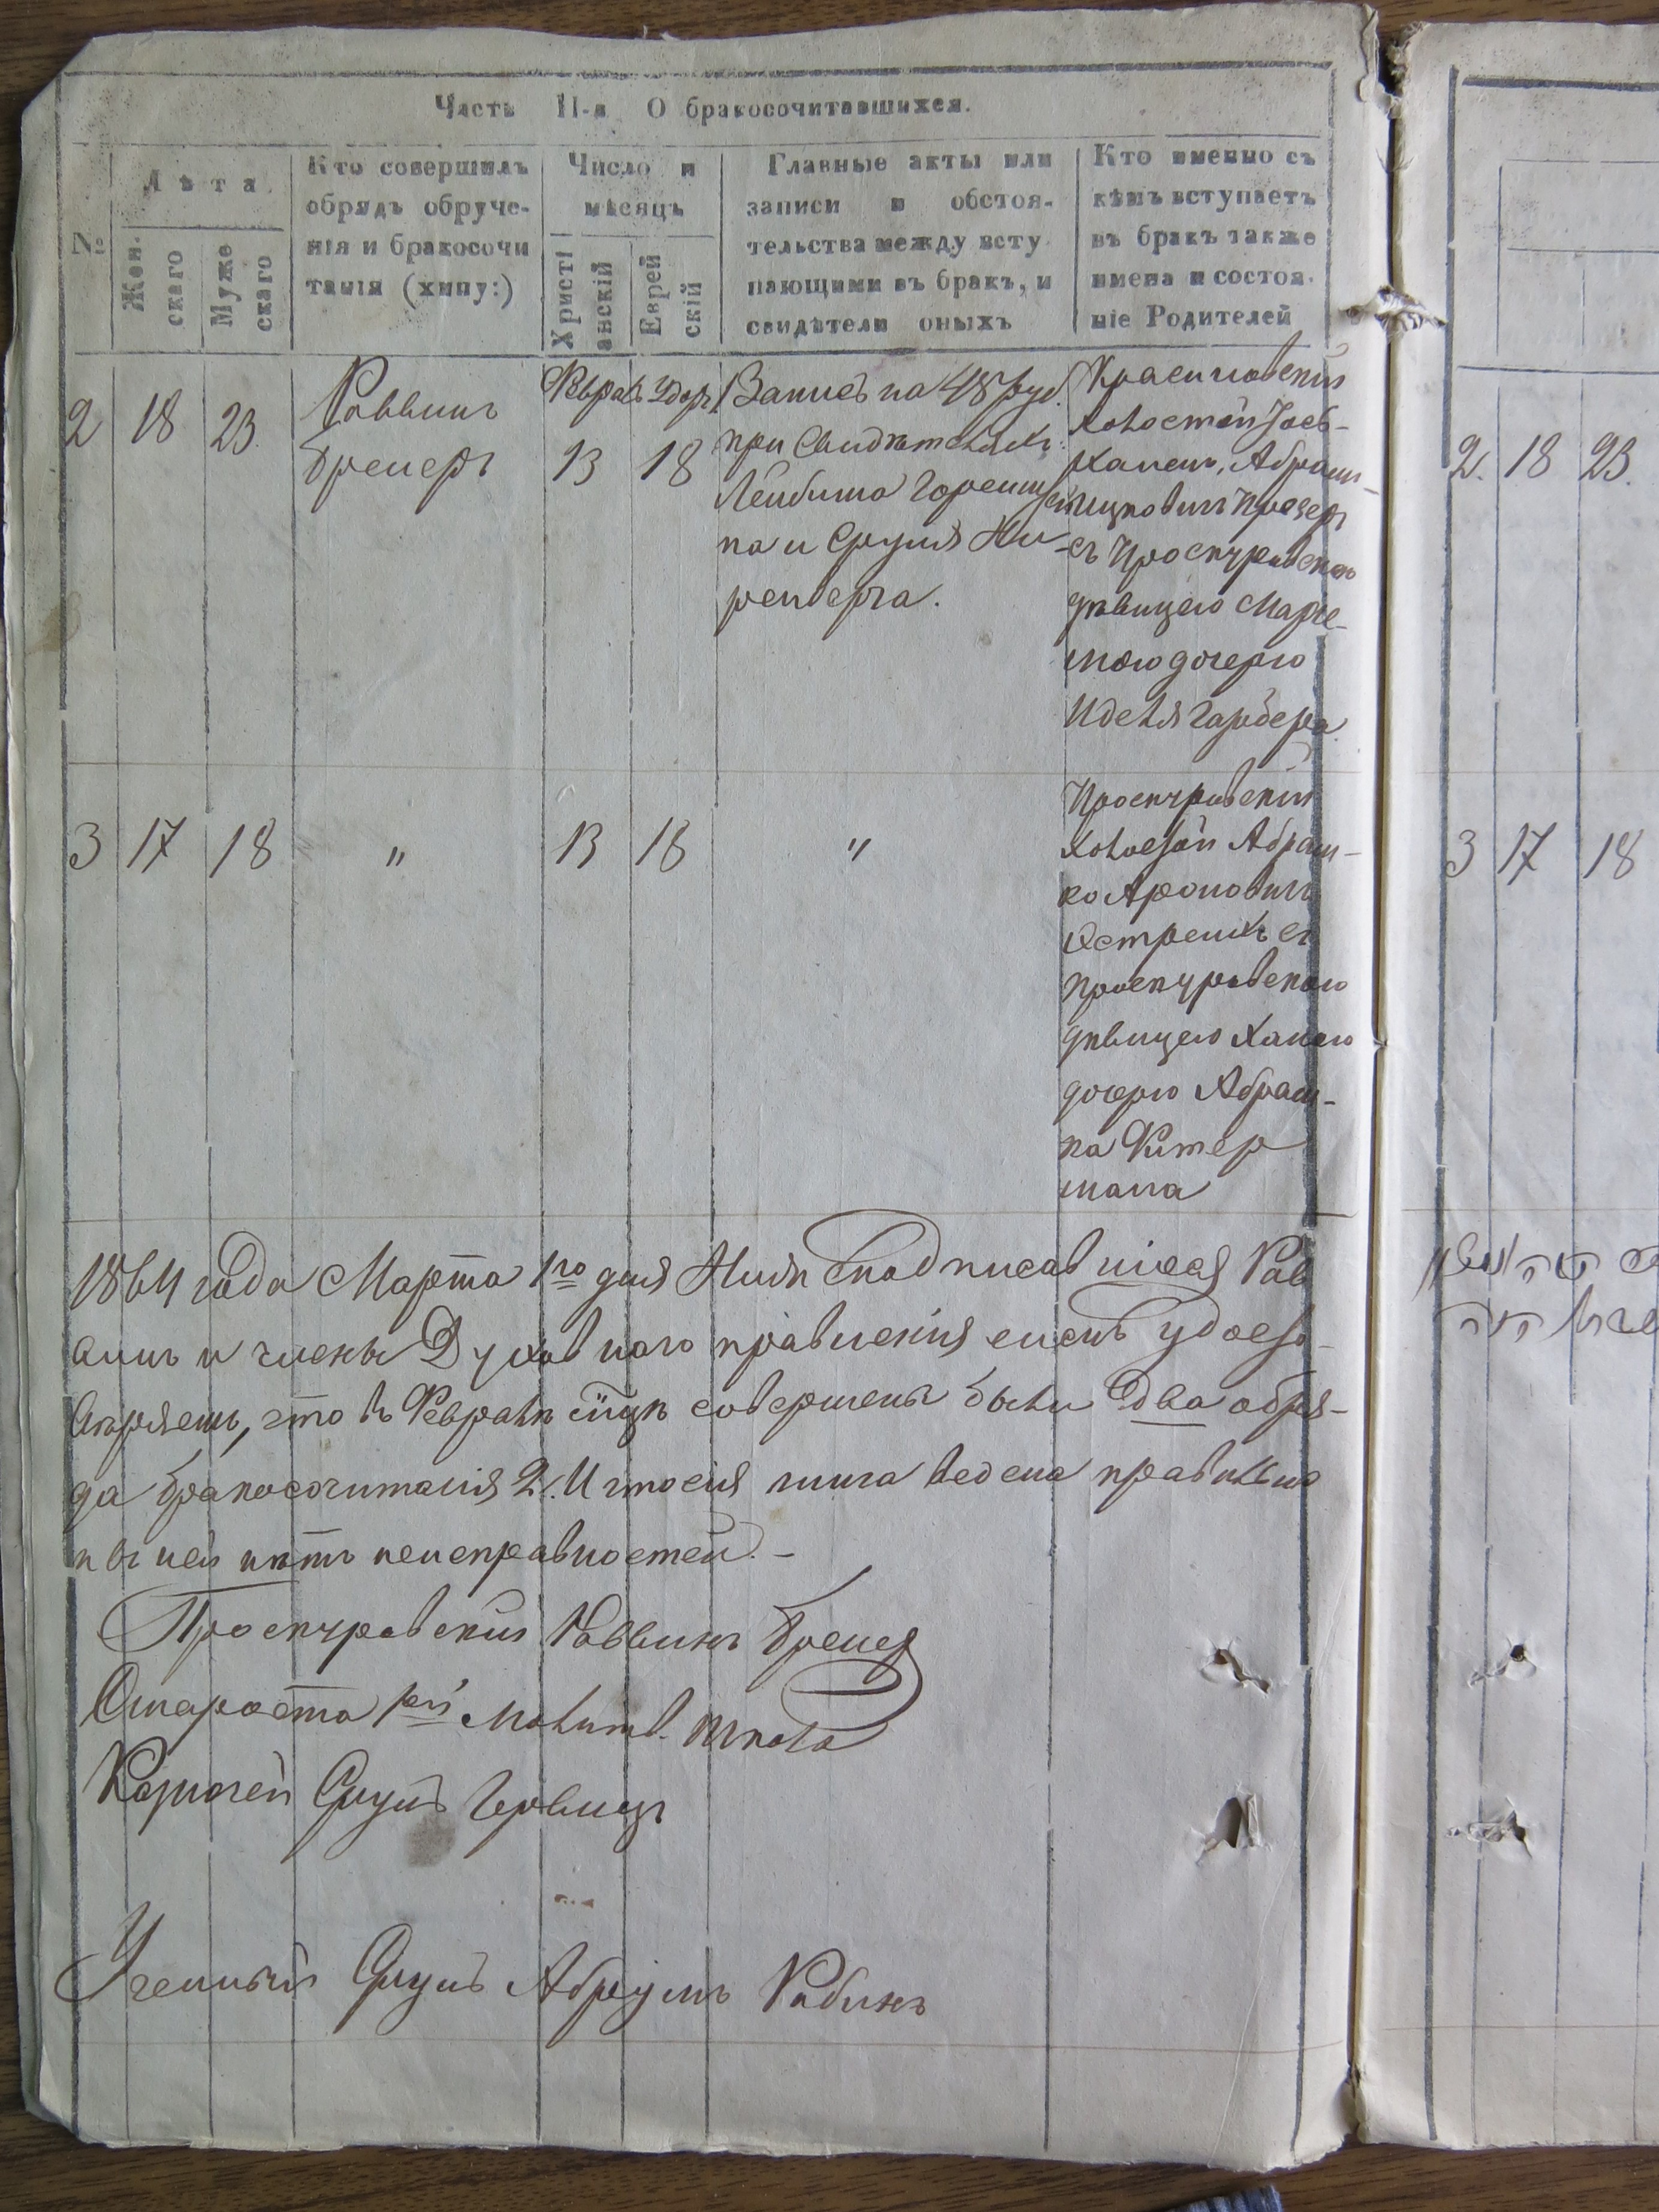 Часть II-я О бракосочитавшихся.
№
Лѣта
Жен-
скаго
Муже
скаго
Кто совершилъ
обрядъ обруче-
нія и бракосочи
танія (хипу:)
Число и
мѣсяцъ
Христі
анскій
Еврей
скій
Главные акты или
записи и обстоя-
тельства между всту
пающими въ бракъ, и
свидѣтели оныхъ
Кто именно съ
кѣмъ вступаетъ
въ бракъ также
имена и состоя-
ніе Родителей
2 18 23.
Раввинъ
Бренеръ
Февраль
13
Удоръ
18
Запись на 48 руб.
при свидѣтеляхъ
Лейбиша
ка и Сруля Ни
ренберга.
Холостой Іось-
Ицковичъ
съ Проскуровскою
дѣвицею
дочерью
Иделя Гарбера
3 17 18 " 13 18 "
Проскуровскій
холостой Абрам-
ко Ароновичъ
съ
Проскуровскою
дѣвицею Ханею
дочерью Абрам-
ка Фитер
мана
1864 года Марта 1го дня Нижеподписавшіеся Рав
винъ и члены Духовнаго правленія симъ удосто-
вѣряемъ, что въ Февралѣ мцѣ совершены были два обря-
да бракосочитанія 2. И что сія книга ведена правильно
и въ ней нѣтъ неисправностей. -
Проскуровскій Раввинъ Бренер
Староста 1ей Молитв. школы
Казначей Сруль Гервицъ
Ученный Сруль Абрумъ Рабинъ
2. 18 23.
3 17 18